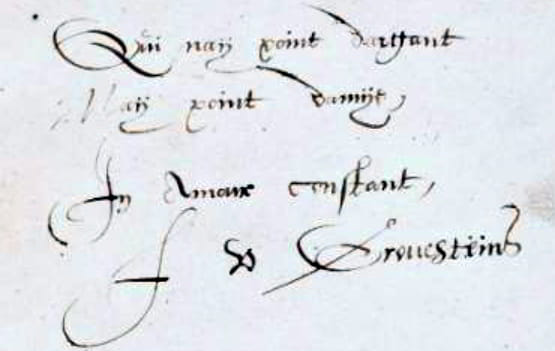 Qui naÿ point dargant
Naÿ point damÿe,
In Amour constant,
F v Grouesteins